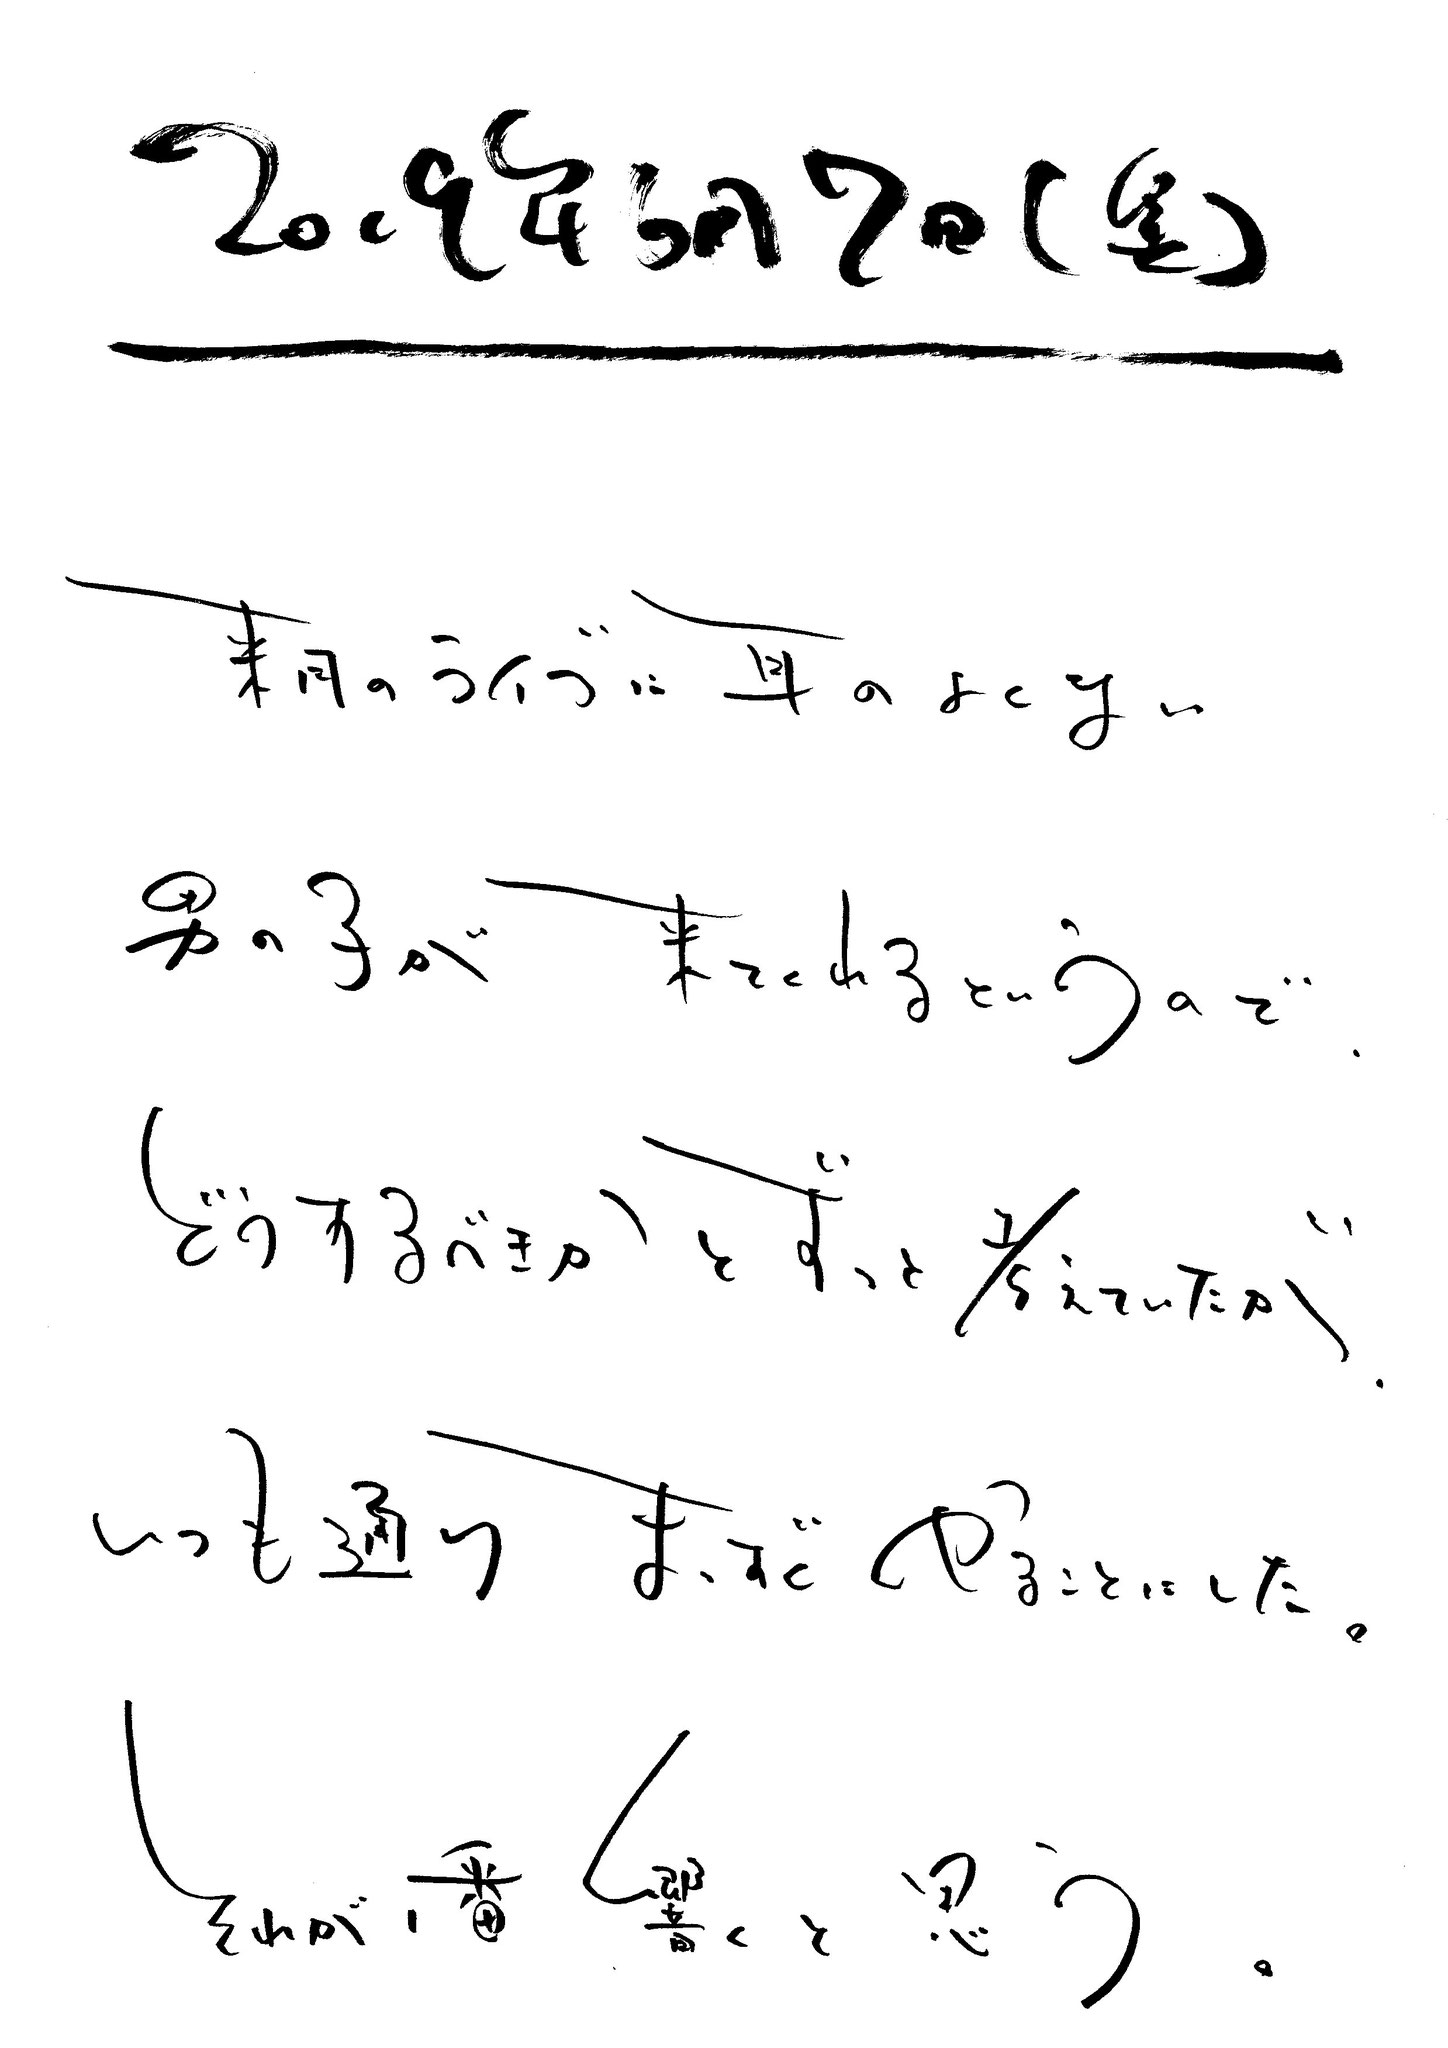 2019年6月7日(金)
来月のライブに 耳のよくない
男の子が 来てくれるというので、
どうするべきか とずっと 考えていたが、
いつも通り まっすぐ やることにした。
それが1番 響くと思う。